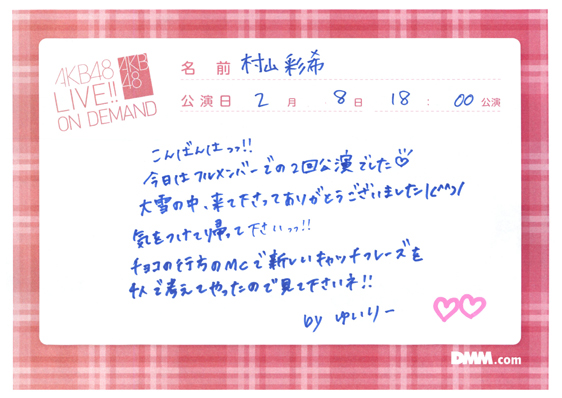 AKB48
LIVE!!
ON DEMAND
AKB
48
名 前 村山 彩希
公演日 2 月 8日 18 : 00 公演
こんばんはっっ!!
今日はフルメンバーでの2回公演でした♡
大雪の中、来て下さってありがとうございました!(^^)/
気をつけて帰って下さいっっ!!
チョコの行方のMCで新しいキャッチフレーズを
4人で考えてやったので見て下さいネ!!
by ゆいりー
DMM.com